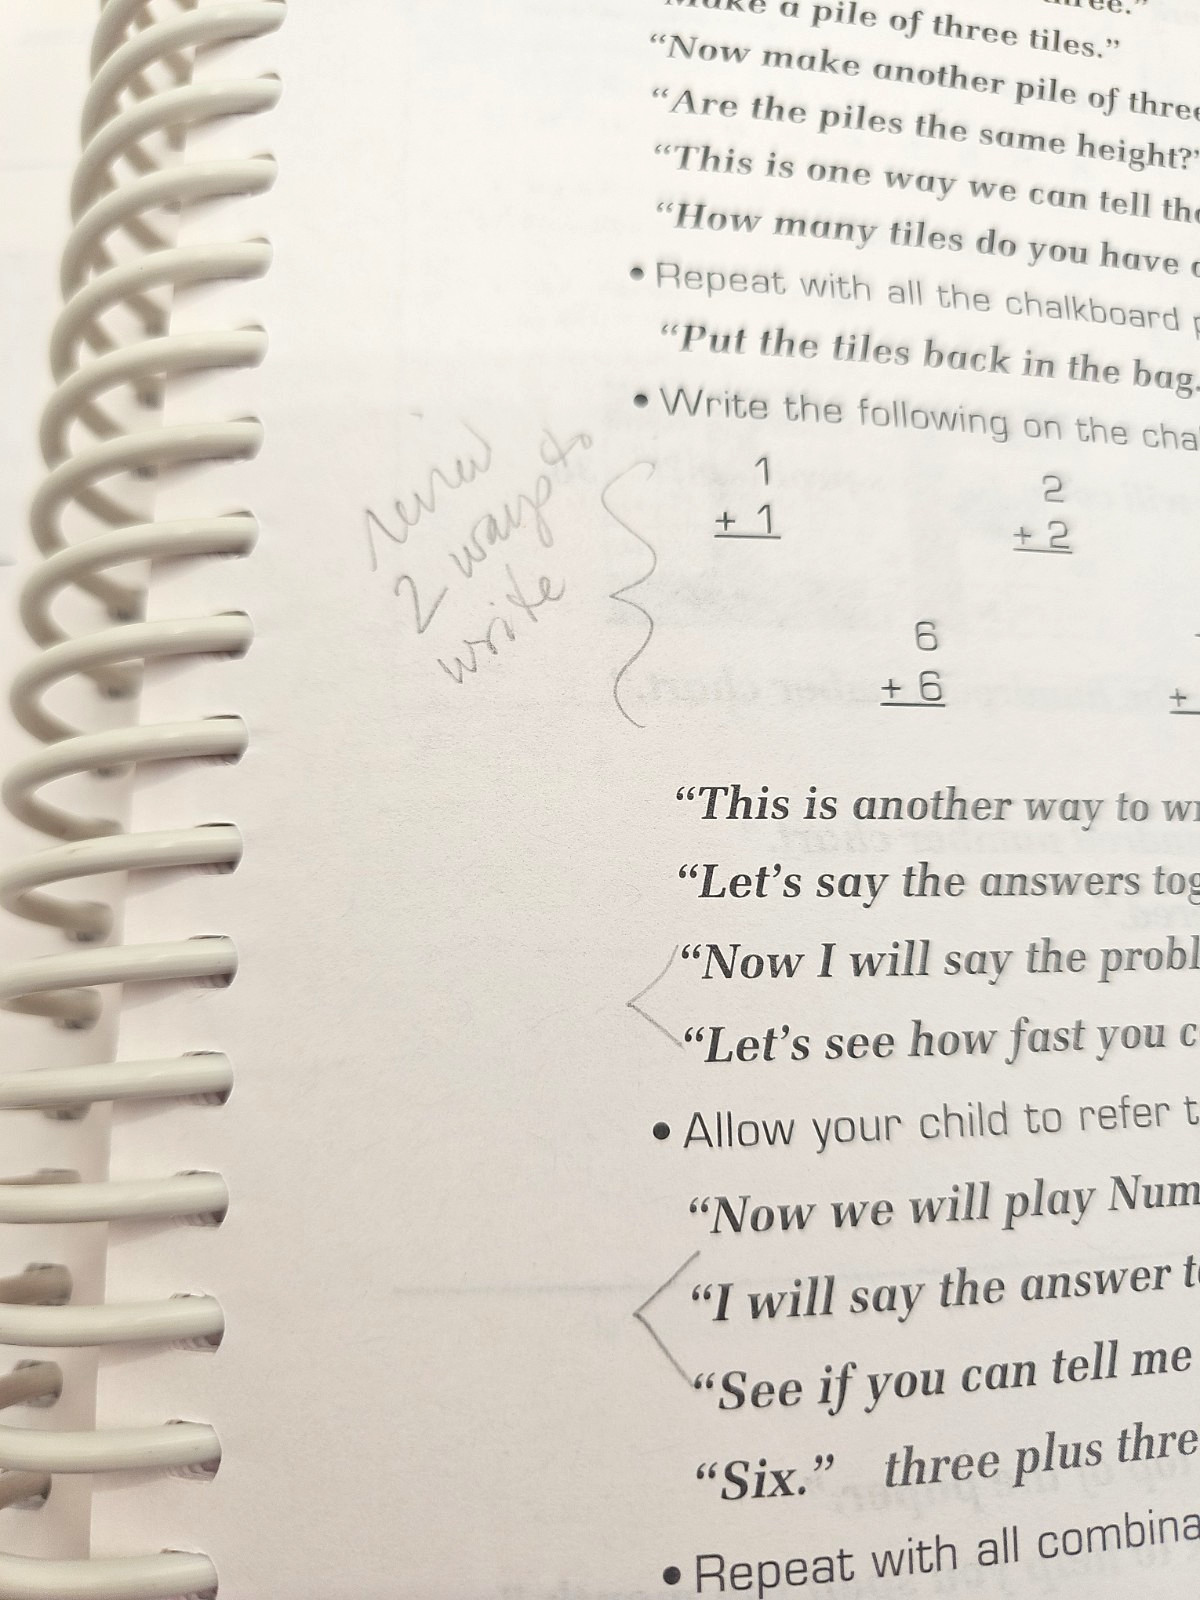 a pile of three tiles.”
“Now make another pile of three
“Are the piles the same height?”
“This is one way we can tell
“How many tiles do you have
• Repeat with all the chalkboard
“Put the tiles back in the bag.
• Write the following on the
review
2 ways to
write
1
+ 1
2
+ 2
6
+ 6
+
“This is another way to
“Let’s say the answers
“Now I will say the
“Let’s see how fast you
• Allow your child to refer
“Now we will play
“I will say the answer
“See if you can tell me
“Six.” three plus
• Repeat with all